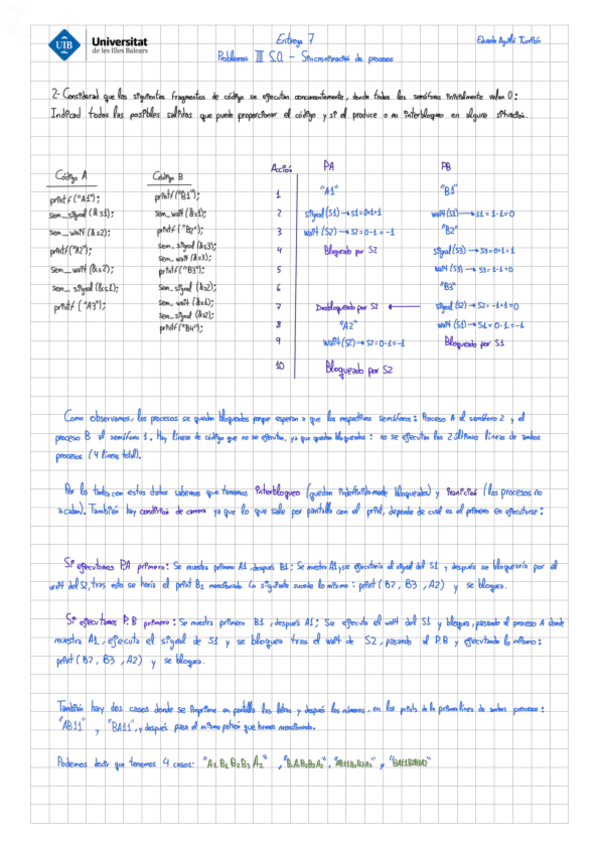 UIB Universitat
de les Illes Balears
Entrega 7
Problemas III S.O. - Sincronización de procesos
2- Considerad que los siguientes fragmentos de código se ejecutan concurrentemente, donde todos los semáforos inicialmente valen 0:
Indicad todas las posibles salidas que puede proporcionar el código y si el produce o no interbloqueo en alguna situación.
Código A
printf("A1");
sem_signal(&s1);
sem_wait(&s2);
printf("A2");
sem_wait(&s2);
sem_signal(&s1);
printf("A3");
Código B
printf("B1");
sem_wait(&s1);
printf("B2");
sem_signal(&s3);
sem_wait(&s3);
printf("B3");
sem_signal(&s2)
sem_wait(&s1);
sem_signal(&s2);
printf("B4");
Acción PA PB
1 "A1" "B1"
2 signal(S1) → S1=0+1=1 wait(S1) → S1=1-1=0
3 wait(S2) → S2=0-1=-1 "B2"
4 Bloqueado por S2 signal(S3) → S3=0+1=1
5 wait(S3) → S3=1-1=0
6 "B3"
7 Desbloqueado por S2 ← signal(S2) → S2=-1+1=0
8 "A2" wait(S1) → S1=0-1=-1
9 wait(S2) → S2=0-1=-1 Bloqueado por S1
10 Bloqueado por S2
Como observamos, los procesos se quedan bloqueados porque esperan a que los respectivos semáforos: Proceso A al semáforo 2 y el
proceso B al semáforo 1. Hay líneas de código que no se ejecutan, ya que quedan bloqueados: no se ejecutan las 2 últimas líneas de ambos
procesos (4 líneas total).
Por lo tanto con estos datos sabemos que tenemos interbloqueo (quedan indefinidamente bloqueados) y inanición (los procesos no
acaban). También hay condición de carrera ya que lo que sale por pantalla con el print, depende de cual es el primero en ejecutarse:
Si ejecutamos P.A primero: Se muestra primero A1, después B1: Se muestra A1 y se ejecutaría el signal del S1 y después se bloquearía por el
wait del S2, tras esto se haría el print B1 mencionado. Lo siguiente sucede lo mismo: print(B2, B3, A2) y se bloquea.
Si ejecutamos P.B primero: Se muestra primero B1, después A1: Se ejecuta el wait del S1 y bloquea, pasando al proceso A donde
muestra A1, ejecuta el signal de S1 y se bloquea tras el wait de S2, pasando al P.B y ejecutando lo mismo:
print(B2, B3, A2) y se bloquea.
También hay dos casos donde se imprime en pantalla las letras y después los números, en los prints de la primera línea de ambos procesos:
"AB11" y "BA11", y después pasa el mismo patrón que hemos mencionado.
Podemos decir que tenemos 4 casos: "A1B1B2B3A2", "B1A1B2B3A2", "AB11B2B3A2" y "BA11B2B3A2"